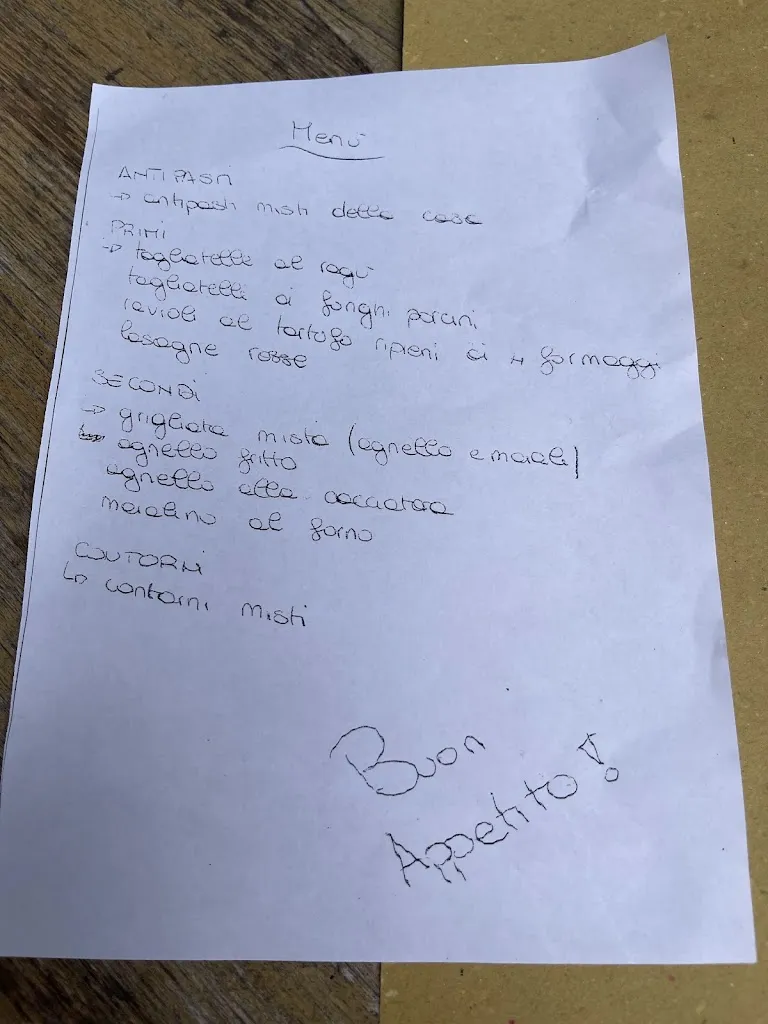 Menù
ANTIPASTI
→ antipasti misti della casa
PRIMI
→ tagliatelle al ragù
tagliatelle ai funghi porcini
ravioli al tartufo ripieni ai 4 formaggi
lasagne rosse
SECONDI
→ grigliata mista (agnello e maiale)
agnello fritto
agnello alla cacciatora
maialino al forno
CONTORNI
↳ contorni misti
Buon
Appetito!